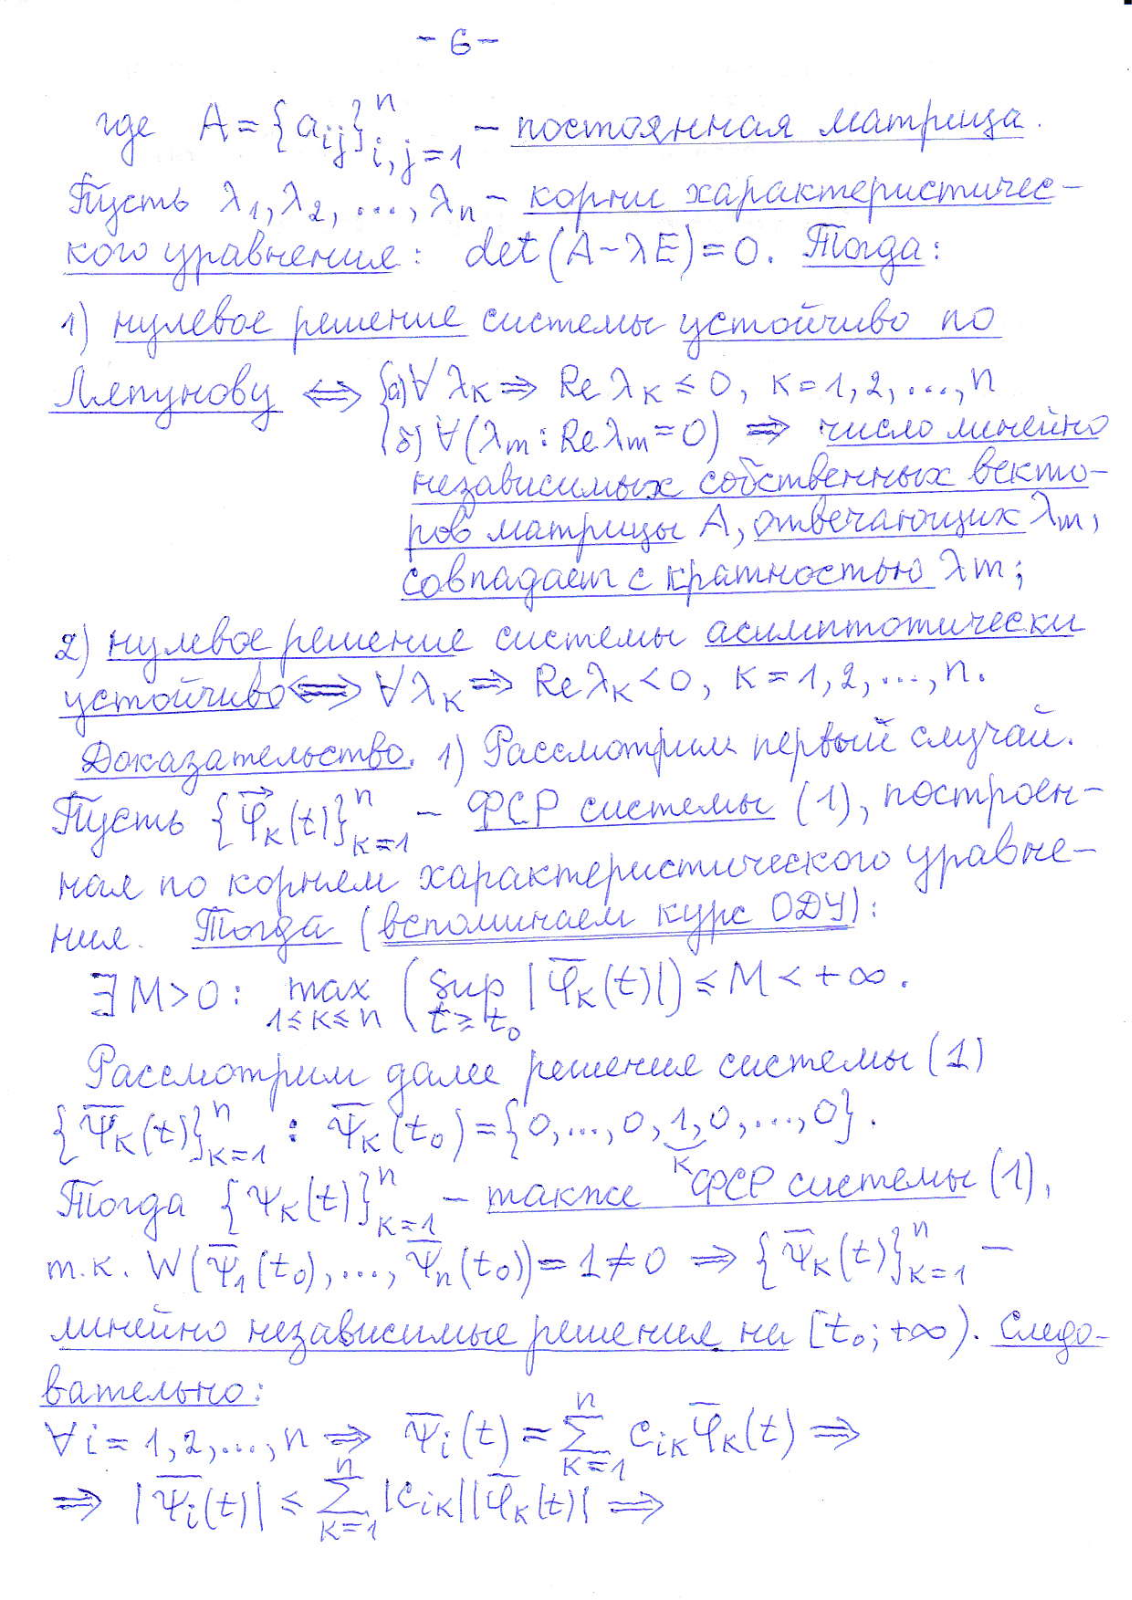 - 6 -
где A = {a_ij}^n_{i,j=1} – постоянная матрица.
Пусть λ₁, λ₂, ..., λₙ – корни характеристичес-
кого уравнения: det(A - λE) = 0. Тогда:
1) нулевое решение системы устойчиво по
Ляпунову ⟺ { а) ∀ λ_k ⇒ Re λ_k ≤ 0, k = 1, 2, ..., n
б) ∀ (λ_m : Re λ_m = 0) ⇒ число линейно
независимых собственных векто-
ров матрицы A, отвечающих λ_m,
совпадает с кратностью λ_m;
2) нулевое решение системы асимптотически
устойчиво ⟺ ∀ λ_k ⇒ Re λ_k < 0, k = 1, 2, ..., n.
Доказательство. 1) Рассмотрим первый случай.
Пусть {φ⃗_k(t)}^n_{k=1} – ФСР системы (1), построен-
ная по корням характеристического уравне-
ния. Тогда (вспоминаем курс ОДУ):
∃ M > 0 : max_{1≤k≤n} ( sup_{t≥t₀} |φ̅_k(t)| ) ≤ M < +∞.
Рассмотрим далее решение системы (1)
{ψ̅_k(t)}^n_{k=1} : ψ̅_k(t₀) = {0, ..., 0, 1, 0, ..., 0}.
k
Тогда {ψ_k(t)}^n_{k=1} – также ФСР системы (1),
т.к. W(ψ̅₁(t₀), ..., ψ̅ₙ(t₀)) = 1 ≠ 0 ⇒ {ψ̅_k(t)}^n_{k=1} –
линейно независимые решения на [t₀; +∞). Следо-
вательно:
∀ i = 1, 2, ..., n ⇒ ψ̅_i(t) = ∑^n_{k=1} c_ik φ̅_k(t) ⇒
⇒ |ψ̅_i(t)| ≤ ∑^n_{k=1} |c_ik| |φ̅_k(t)| ⇒